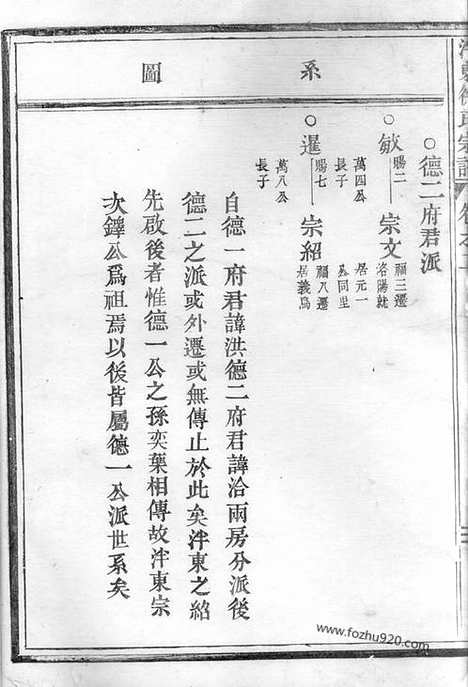 東氏宗譜
系圖
○德二府君派
○敏 賜二 宗文 福三遷
洛陽就
萬四公 居元一
長子 公同里
○暹 賜七 宗紹 福八遷
居義烏
萬八公
長子
自德一府君諱洪德二府君諱洽兩房分派後
德二之派或外遷或無傳止於此矣泮東之紹
先啟後者惟德一公之孫奕葉相傳故泮東宗
次鐸公爲祖焉以後皆屬德一公派世系矣
www.fozhu920.com